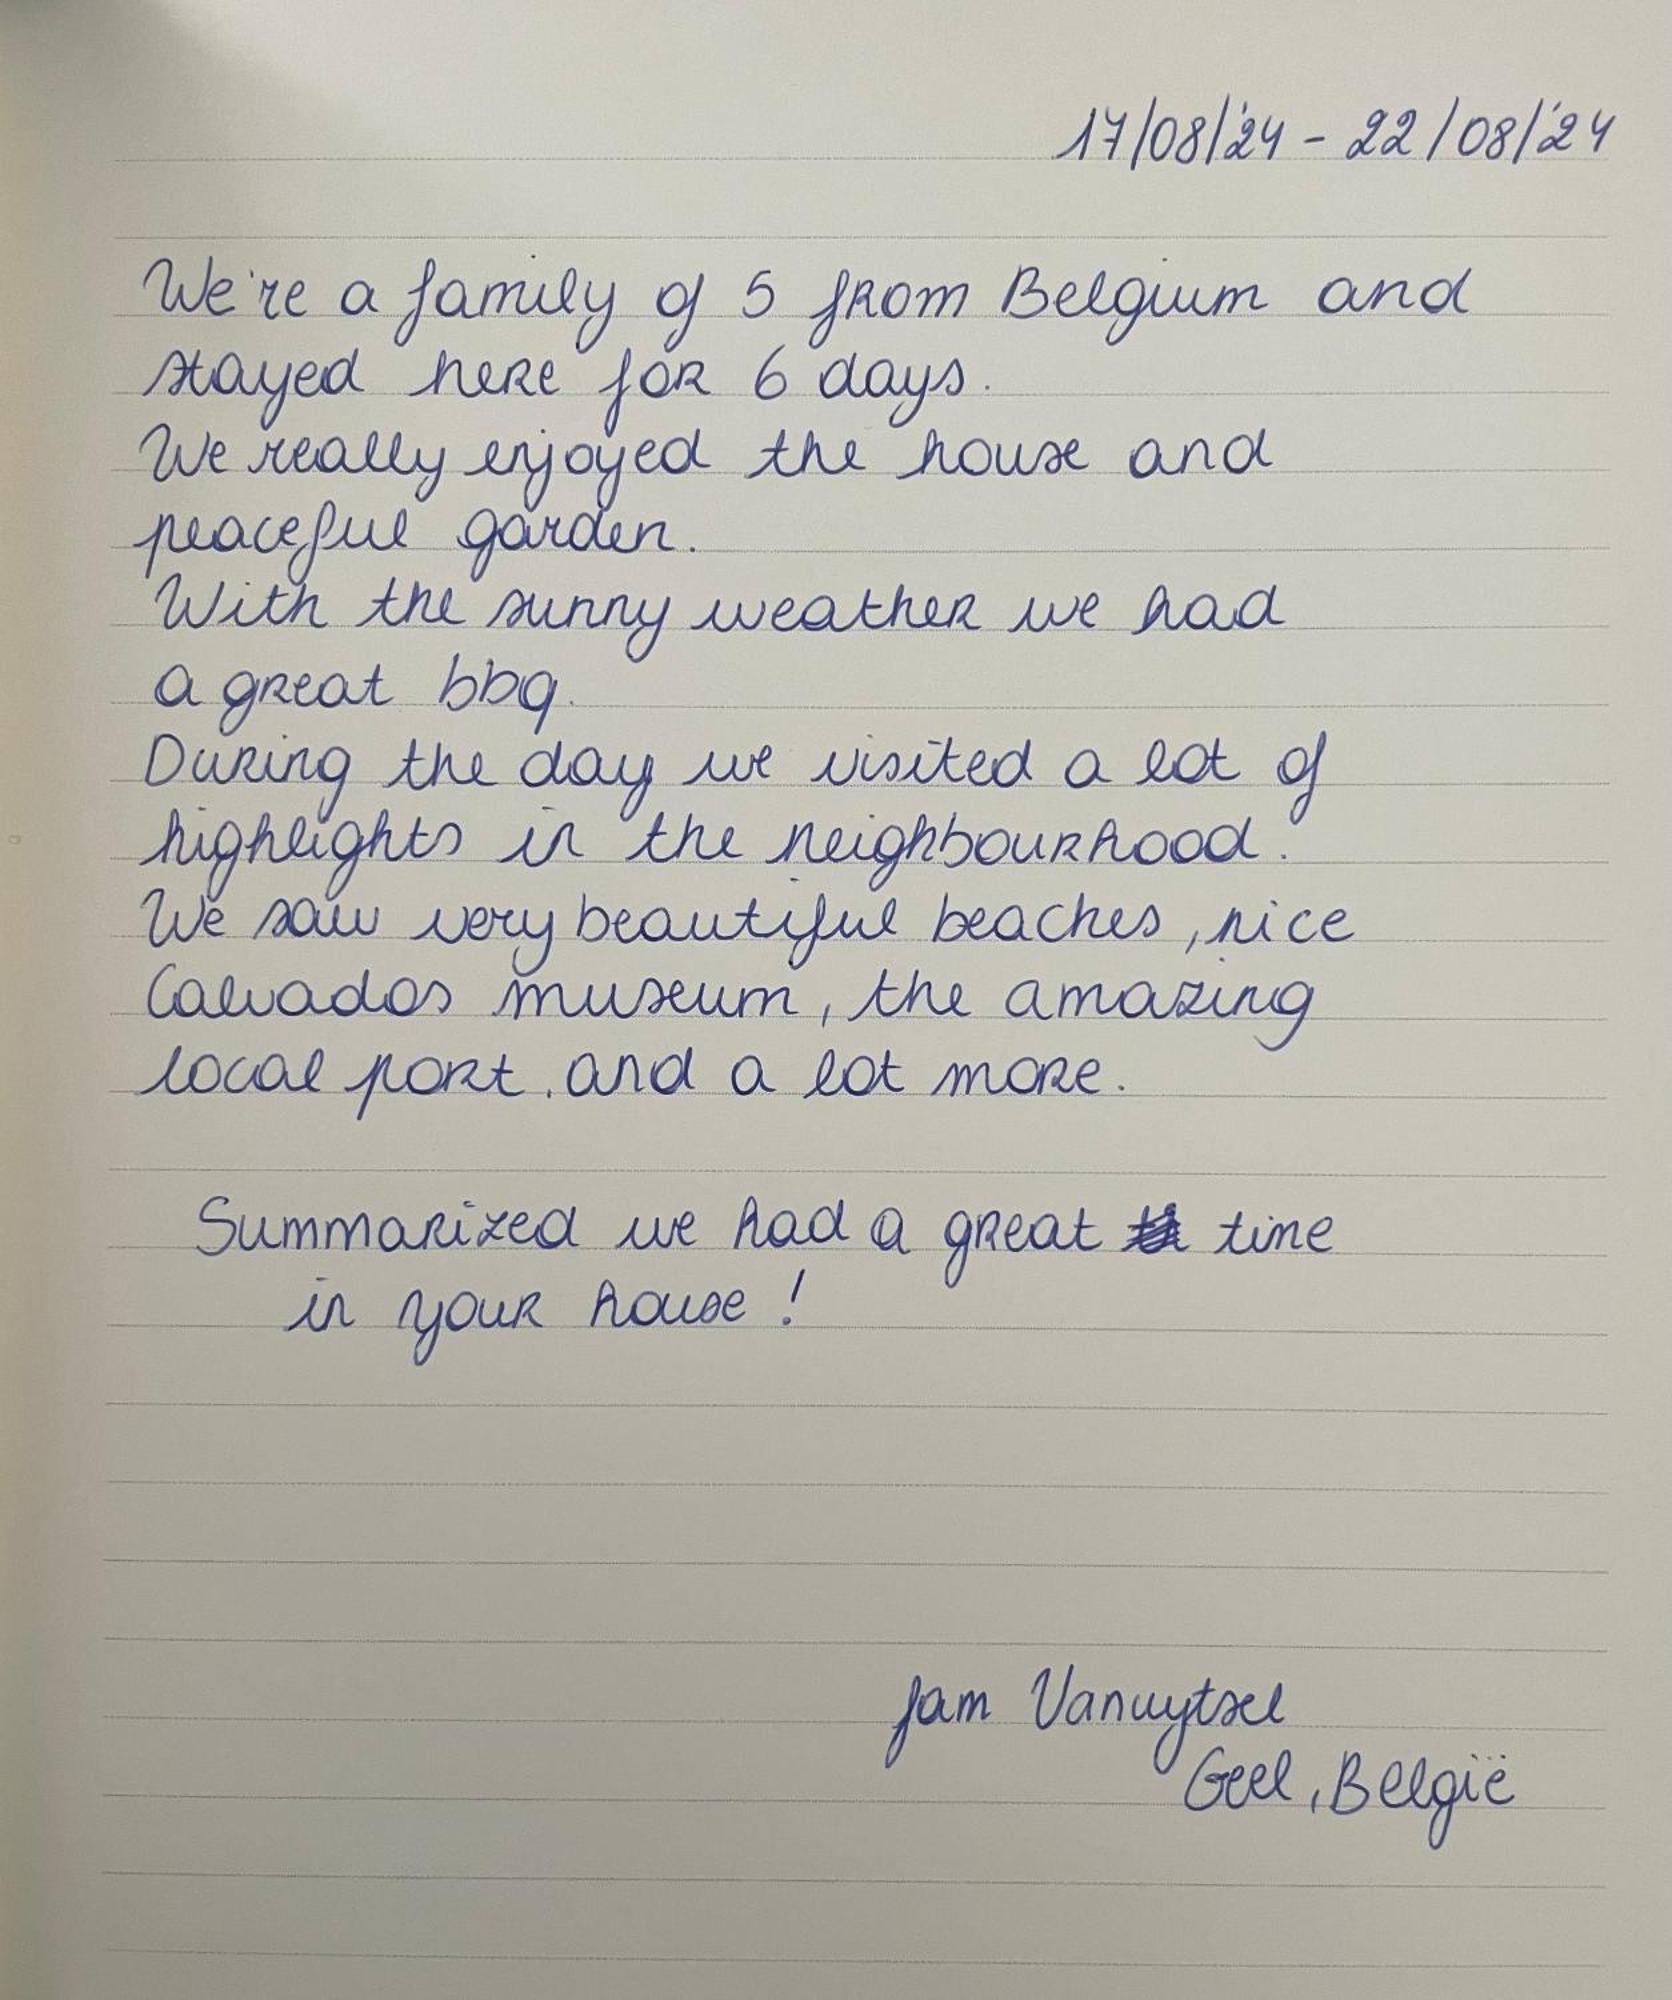 17/08/'24 - 22/08/'24
We're a family of 5 from Belgium and
stayed here for 6 days.
We really enjoyed the house and
peaceful garden.
With the sunny weather we had
a great bbq.
During the day we visited a lot of
highlights in the neighbourhood.
We saw very beautiful beaches, nice
Calvados museum, the amazing
local port, and a lot more.
Summarized we had a great time
in your house!
fam Vanuytsel
Geel, België